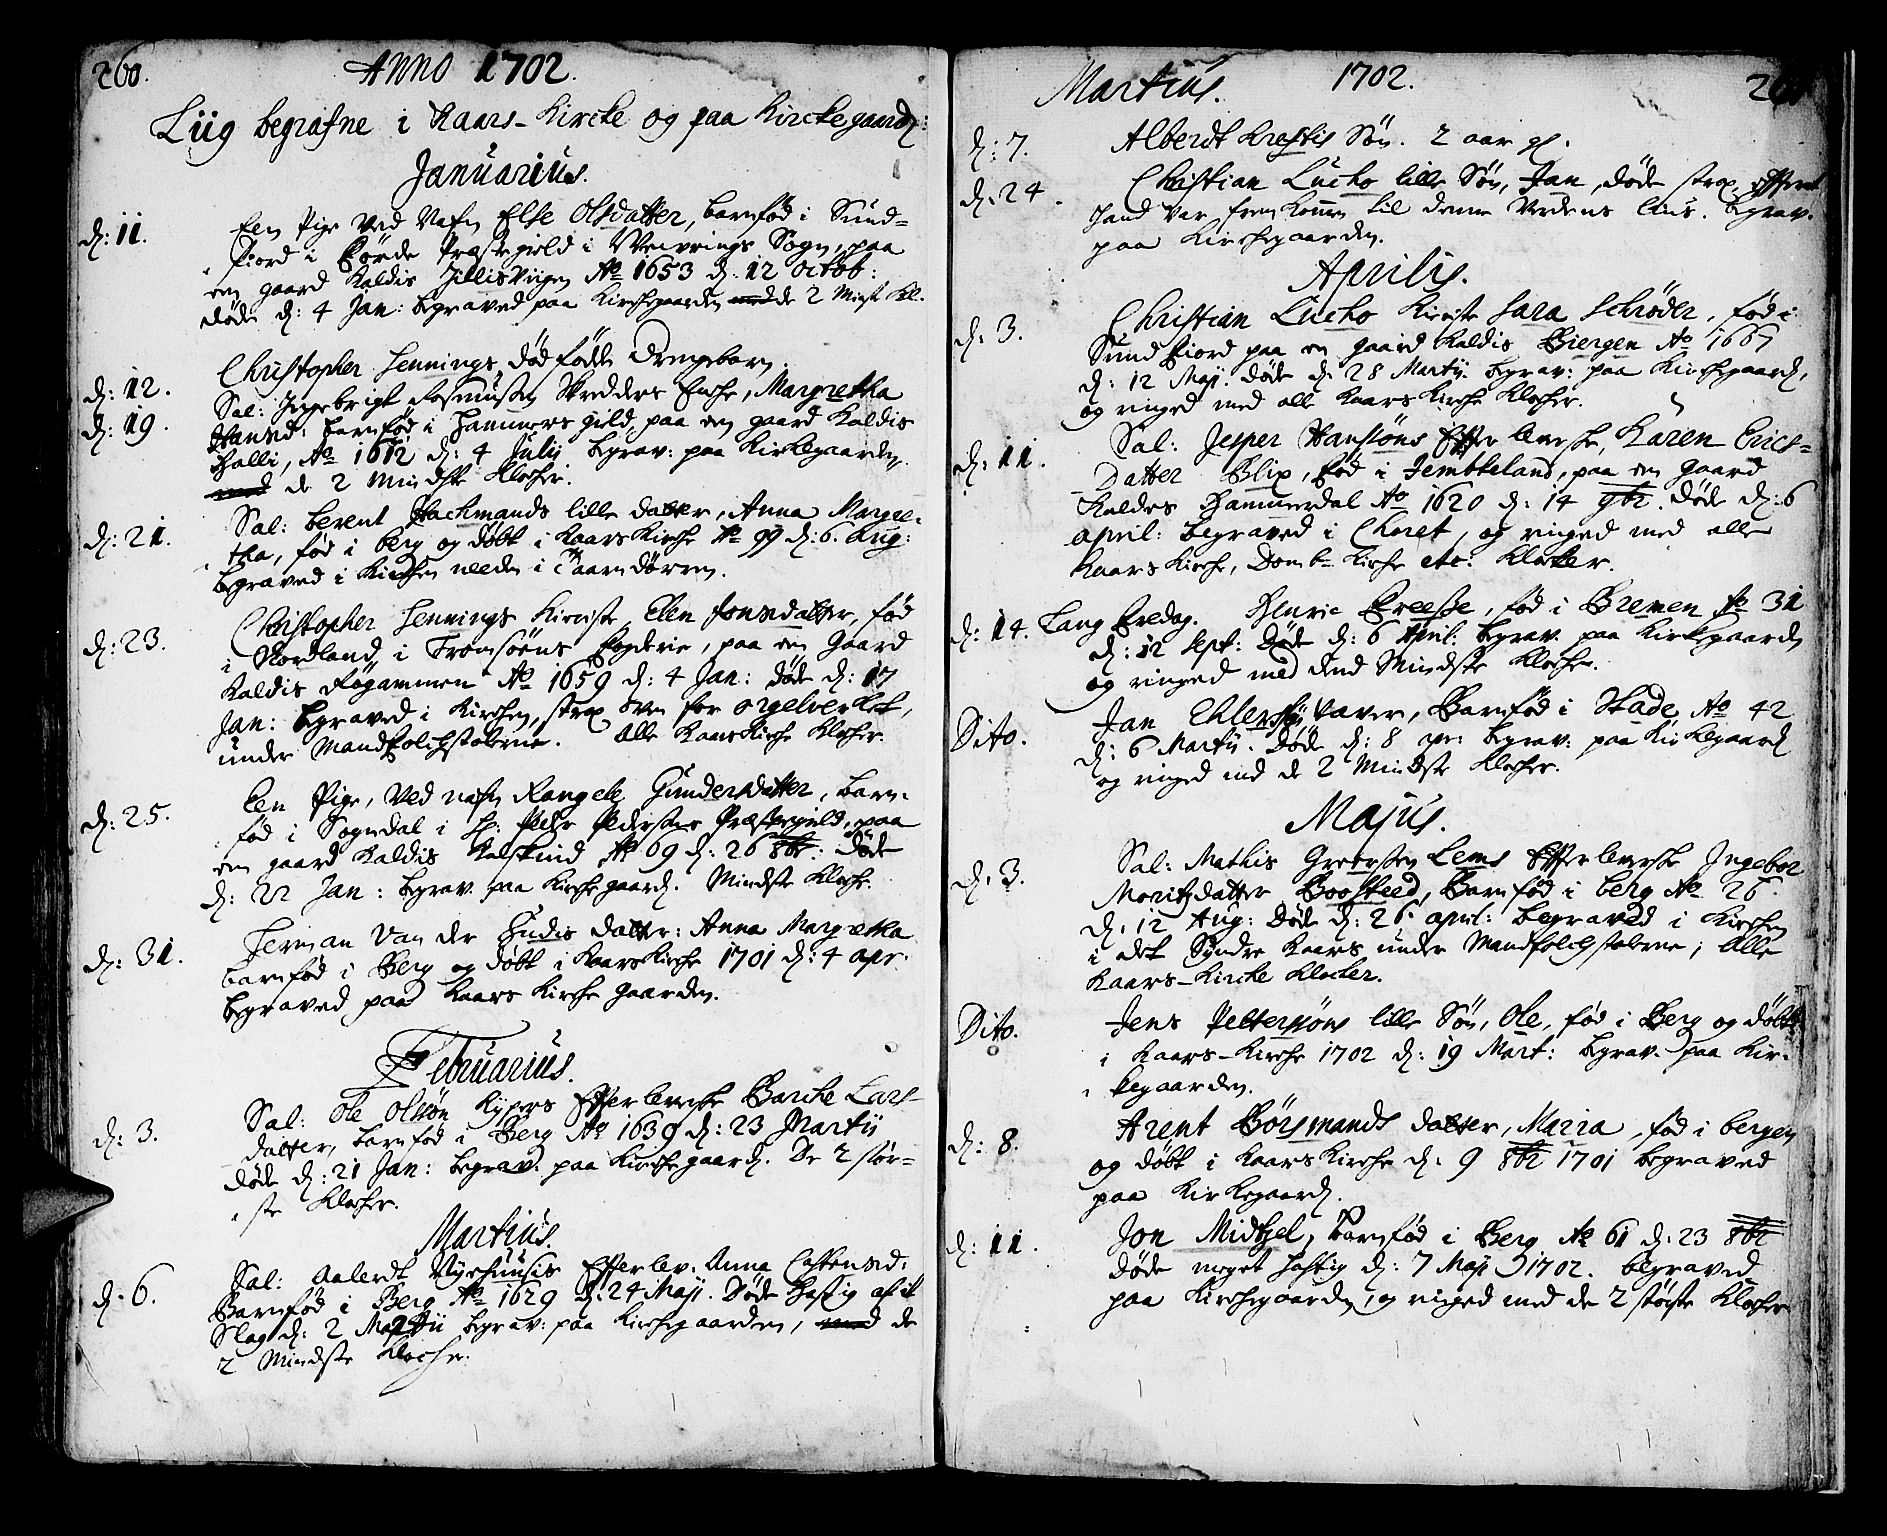 260. Anno 1702.
Liig begrafne i Kaars-Kircke og paa Kirckegaard:
Januarius.
d: 11. Een Pige ved Nafn Else Olsdatter, barnfød i Sund-
fiord i Førde Præstegield i Wevrings Sogn, paa
een gaard kaldis Aº 1653 d: 12 Octob:
døde d: 4 Jan: begraved paa Kirchegaarden med de 2 Minste Kl.
d: 12. Christopher Hennings dødfødde drengebarn.
d: 19. Sal: Rasmusen Skredders Enche, Margretha
Hansd: barnfød i Hammers gield, paa en gaard kaldis
Halli, Aº 1612 d: 4 Julij begrav: paa Kirkegaarden.
med de 2 Mindste Klocher.
d: 21. Sal: berent Hachmands lille datter, Anna Margre-
tha, fød i berg og døbt i Kaars Kirche Aº 99 d: 6. Aug:
begraved i Kirchen needen i Taarndørren.
d: 23. Christopher Hennings Kieriste Elen Jonsdatter, fød
i Nordland i Tromsöens fogderie, paa en Gaard
kaldis Aº 1659 d: 4 Jan: døde d: 17
Jan: begraved i Kirchen, strax oven for orgelverket,
under Mandfolchstolerne. Alle Kaars Kirche Klocher.
d: 25. Een Pige, ved nafn Rangele Gundersdatter, barn-
fød i Sogndal i Hr: Peder Pedersens Præstegield, paa
en gaard kaldis Aº 69 d: 26 8br: døde
d: 22 Jan: begrav. paa Kirchegaard. Mindste Kloche.
d: 31. Herman Van der Hudis datter: Anna Margretha
barnfød i Berg og døbt i Kaars Kirche 1701 d: 4 apr:
begraved paa Kaars Kirche Gaarden.
Februarius.
d: 3. Sal: Ole Olsøn Kypers Efterleverske Barche Lars-
datter, barnfød i Berg Aº 1639 d: 23 Martij
døde d: 21 Jan: begrav: paa Kirchegaard. De 2 stør-
ste Klocher.
Martius.
d: 6. Sal: Aalerdt Nyehuusis Efterlev: Anna Castensd:
Barnfød i Berg Aº 1629 d: 24 Maji. Døde hastig af it
Slag d: 2 Martii begrav: paa Kirchegaarden, med de
2 Mindste Klocher.
Martius. 1702. 261
d: 7. Alberdt Krestis Søn. 2 aar gl.
d: 24. Christian Lucho lille Søn, Jan, døde strax efterat
hand var fremkommen til denne Verdens lius. begrav.
paa Kirchegaarden.
Aprilis.
d: 3. Christian Lucho Kieriste Sara Schrøder, fød i
Sundfiord paa en gaard kaldis Biergen Aº 1667
d: 12 Maji. døde d: 28 Martij. begrav: paa Kirchegaard,
og ringed med alle Kaars Kirche Klocher.
d: 11. Sal: Jesper Hansøns Efterleverske, Karen Erics-
Datter Blix, fød i Jembteland, paa en gaard
kaldes Hammerdal Aº 1620 d: 14 9br. døde d: 6
april: begraved i Choret, og ringed med alle
Kaars Kirche, Domb-Kirche etc: Klocker.
d: 14. Lang fredag. Henric Freese, fød i Bremen Aº 31
d: 12 Sept: Døde d: 6 April: begrav. paa Kirkegaarden
og ringed med dend Mindste Kloche.
Dito. Jan Ehlers Vaver, Barnfød i Stade, Aº 42
d: 6 Martij. døde d: 8 apr: begrav: paa Kirkegaard
og ringed med de 2 Mindste Klocher.
Majus.
d: 3. Sal: Mathis Lems Efterleverske Ingebor
Moritzdatter Boosteed, Barnfød i berg Aº 26.
d: 12 Aug: døde d: 26 april: begraved i Kirchen
i det Syndre Kaars under Mandfolchstolerne; Alle
Kaars-Kircke Klocker.
Dito. Jens Pettersøns lille Søn, Ole, fød i Berg og døbt
i Kaars-Kirche 1702 d: 19 Mart: begrav. paa Kir-
kegaarden.
d: 8. Arent Børsmands datter, Maria, fød i bergen
og døbt i Kaars Kirche d: 9 8br 1701 begraved
paa Kirkegaard.
d: 11. Jon Midtzel, barnfød i Berg Aº 61 d: 23 8br
døde meget hastig d: 7 Maji 1702. begraved
paa Kirchegaarden, og ringed med de 2 største Klocher